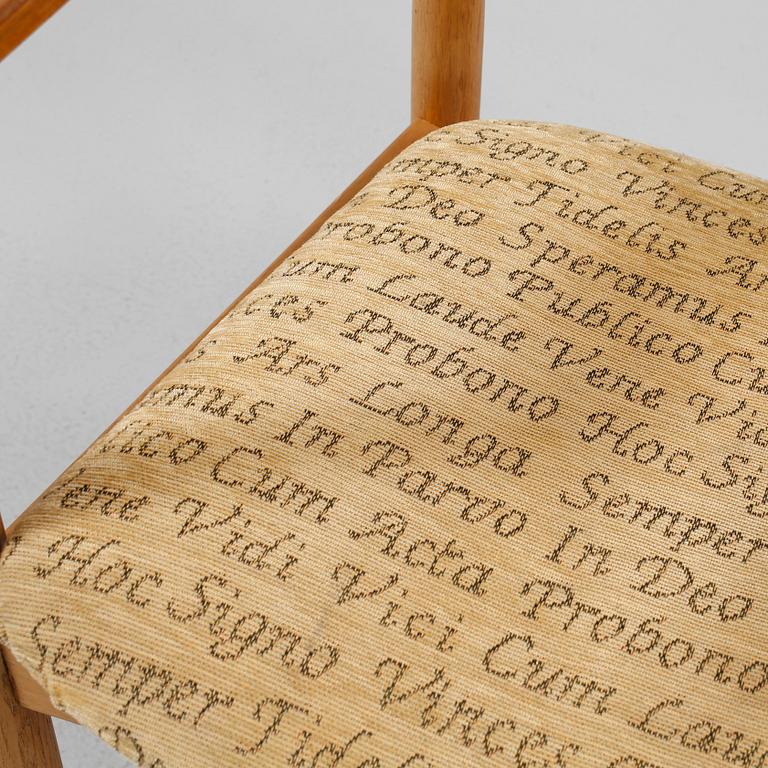 Vici Cum
Signo Vinces
Semper Fidelis Ars
Deo Speramus
Probono Publico Cum
Cum Laude Vene Vidi
Vinces Probono Hoc Signo
Ars Longa Semper
Speramus In Parvo In Deo
Publico Cum Acta Probono
Vene Vidi Vici Cum Laude
Hoc Signo Vinces
Semper Fidelis